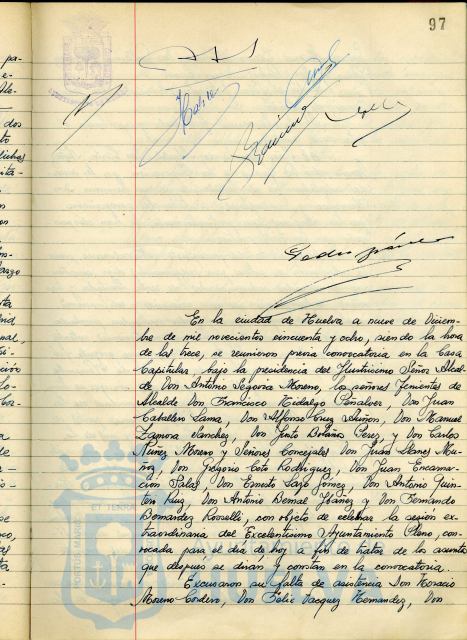 97
Pedro
En la ciudad de Huelva a nueve de Diciem-
bre de mil novecientos cincuenta y ocho, siendo la hora
de las trece, se reunieron previa convocatoria en la Casa
Capitular, bajo la presidencia del Ilustrísimo Señor Alcal-
de Don Antonio Segovia Moreno, los señores Tenientes de
Alcalde Don Francisco Hidalgo Peñalver, Don Juan
Caballero Lama, Don Alfonso Cruz Auñon, Don Manuel
Zamora Sanchez, Don Justo Bolaños Perez, y Don Carlos
Nuñez Moreno y Señores Concejales Don Juan Llanes Mu-
ñoz, Don Gregorio Coto Rodriguez, Don Juan Encarna-
cion Salas, Don Ernesto Lazo Gómez, Don Antonio Quin-
tero Ruiz, Don Antonio Bernal Ybáñez y Don Bernardo
con objeto de celebrar la sesión ex-
traordinaria del Excelentísimo Ayuntamiento Pleno, con-
vocada para el día de hoy a fin de tratar de los asuntos
que despues se diran y constán en la convocatoria.
Excusaron su falta de asistencia Don Horacio
Moreno Cordero, Don Felix Vazquez Hernandez, Don